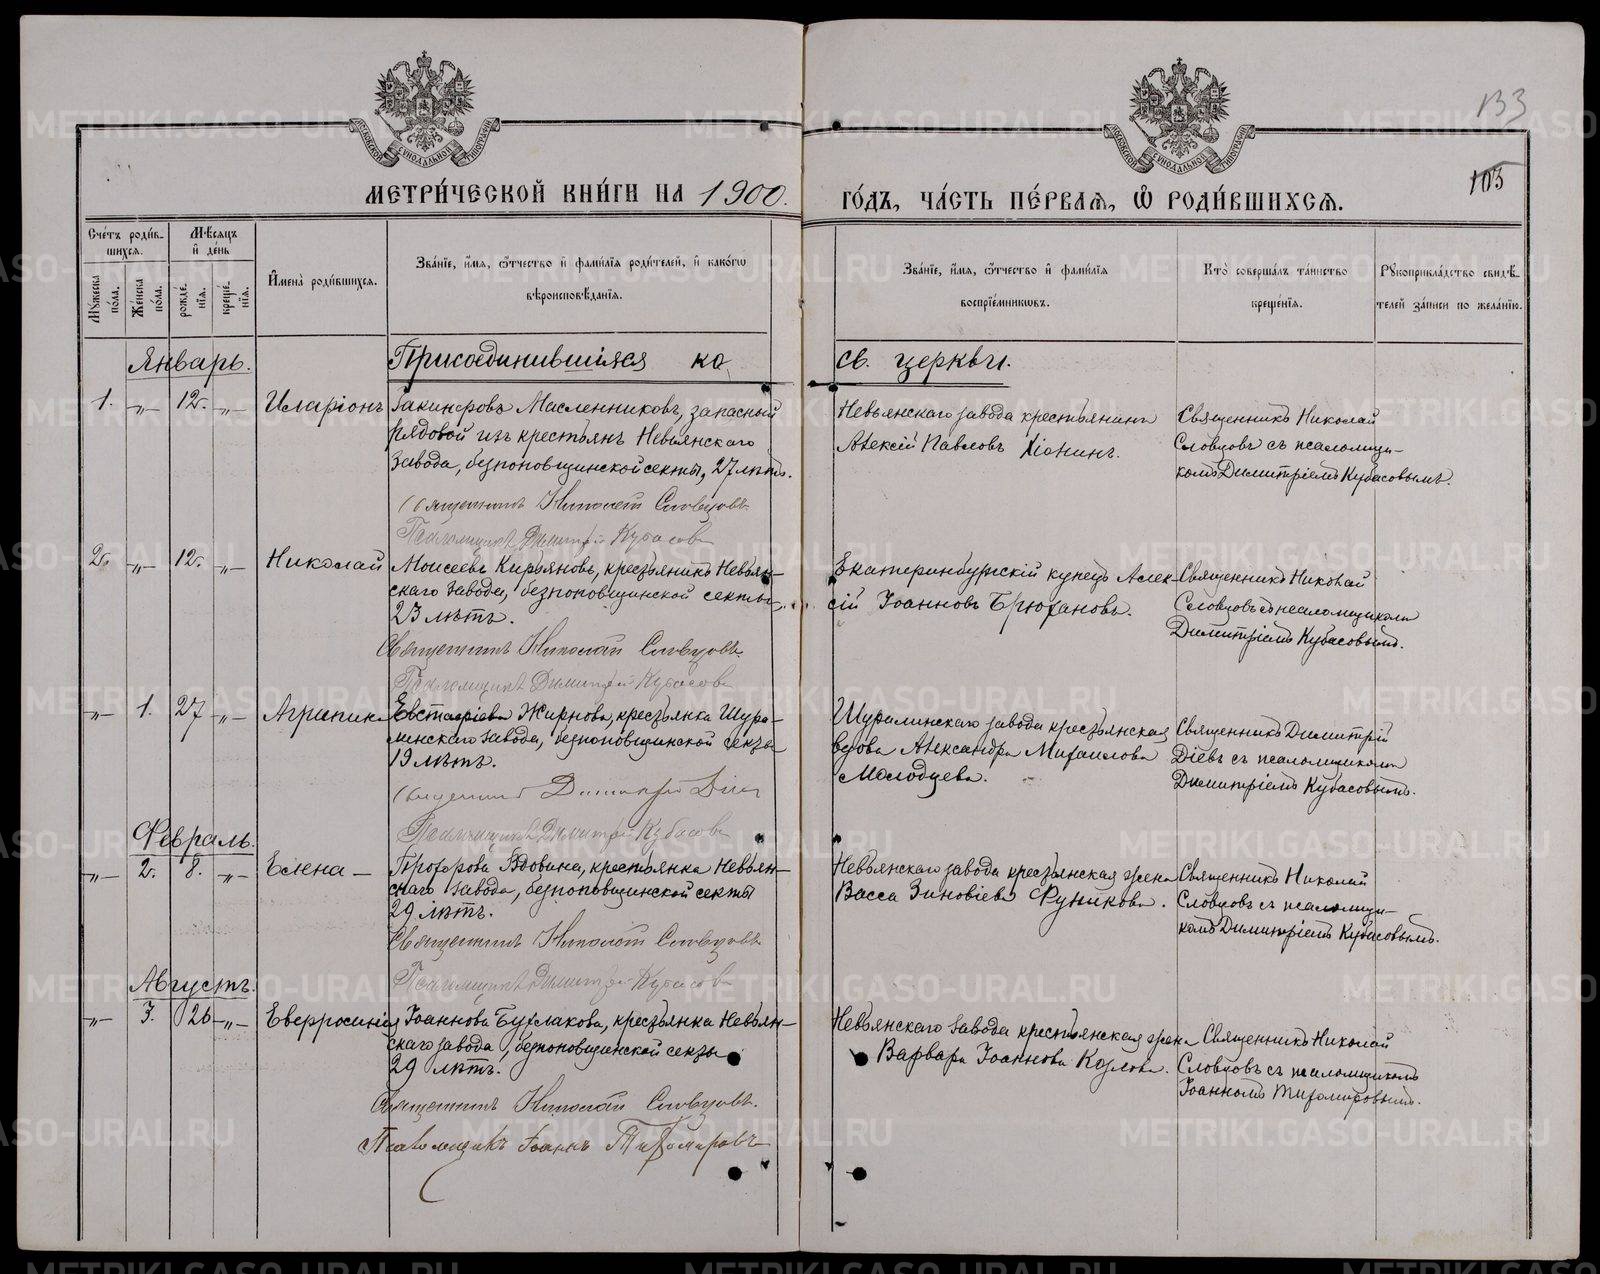 133
103
МЕТРИ́ЧЕСКОЙ КНИ́ГИ НА 1900.
ГО́ДЪ, ЧА́СТЬ ПЕ́РВАѦ, Ѽ РОДИ́ВШИХСѦ.
Сче́тъ роди́в-
шихся.
Мѣ́сяцъ
и де́нь
Му́жеска по́ла.
Же́нска по́ла.
рожде́нїя.
креще́нїя.
Имена̀ роди́вшихся.
Зва́нїе, и́мя, ѻ҆́тчество и фами́лїя роди́телей, и како́гѡ
вѣроисповѣ́данїя.
Зва́нїе, и́мя, ѻ҆́тчество и фами́лїя
воспрїе́мникѡвъ.
Кто̀ соверша́лъ та́инство
креще́нїя.
Рꙋкоприкла́дство свидѣ́-
телей за́писи по жела́нїю.
Январь.
Присоединившіяся ко
св. церкви.
1. -„- 12. -„- Иларіонъ
Гакинѳовъ Масленниковъ, запасный
рядовой изъ крестьянъ Невьянскаго
завода, безпоповщинской секты, 27 лѣтъ.
Священникъ Николай Словцовъ
Псаломщикъ Димитрій Кубасовъ
Невьянскаго завода крестьянинъ
Алексій Павловъ Хіонинъ.
Священникъ Николай
Словцовъ съ псаломщи-
комъ Димитріемъ Кубасовымъ.
2. -„- 12. -„- Николай
Моисеевъ Кирьяновъ, крестьянинъ Невьян-
скаго завода, безпоповщинской секты,
23 лѣтъ.
Священникъ Николай Словцовъ
Псаломщикъ Димитрій Кубасовъ
Екатеринбургскій купецъ Алек-
сій Іоанновъ Брюхановъ.
Священникъ Николай
Словцовъ съ псаломщикомъ
Димитріемъ Кубасовымъ.
-„- 1. 27 -„- Агрипина
Евстафіева Жирнова, крестьянка Шура-
линскаго завода, безпоповщинской секты
19 лѣтъ.
Священникъ Димитрій Діевъ
Псаломщикъ Димитрій Кубасовъ
Шуралинскаго завода крестьянская
вдова Александра Михаилова
Молодцева.
Священникъ Димитрій
Діевъ съ псаломщикомъ
Димитріемъ Кубасовымъ.
Февраль.
-„- 2. 8. -„- Елена -
Прохорова Вдовина, крестьянка Невьян-
скаго завода, безпоповщинской секты
29 лѣтъ.
Священникъ Николай Словцовъ
Псаломщикъ Димитрій Кубасовъ
Невьянскаго завода крестьянская жена
Васса Зиновіева Фуникова.
Священникъ Николай
Словцовъ съ псаломщи-
комъ Димитріемъ Кубасовымъ.
Августъ.
-„- 3. 26 -„- Евфросинія
Іоаннова Бухлакова, крестьянка Невьян-
скаго завода, безпоповщинской секты
29 лѣтъ.
Священникъ Николай Словцовъ.
Псаломщикъ Іоаннъ Тихомировъ
Невьянскаго завода крестьянская жена
Варвара Іоаннова Козлова.
Священникъ Николай
Словцовъ съ псаломщикомъ
Іоанномъ Тихомировымъ.
METRIKI.GASO-URAL.RU